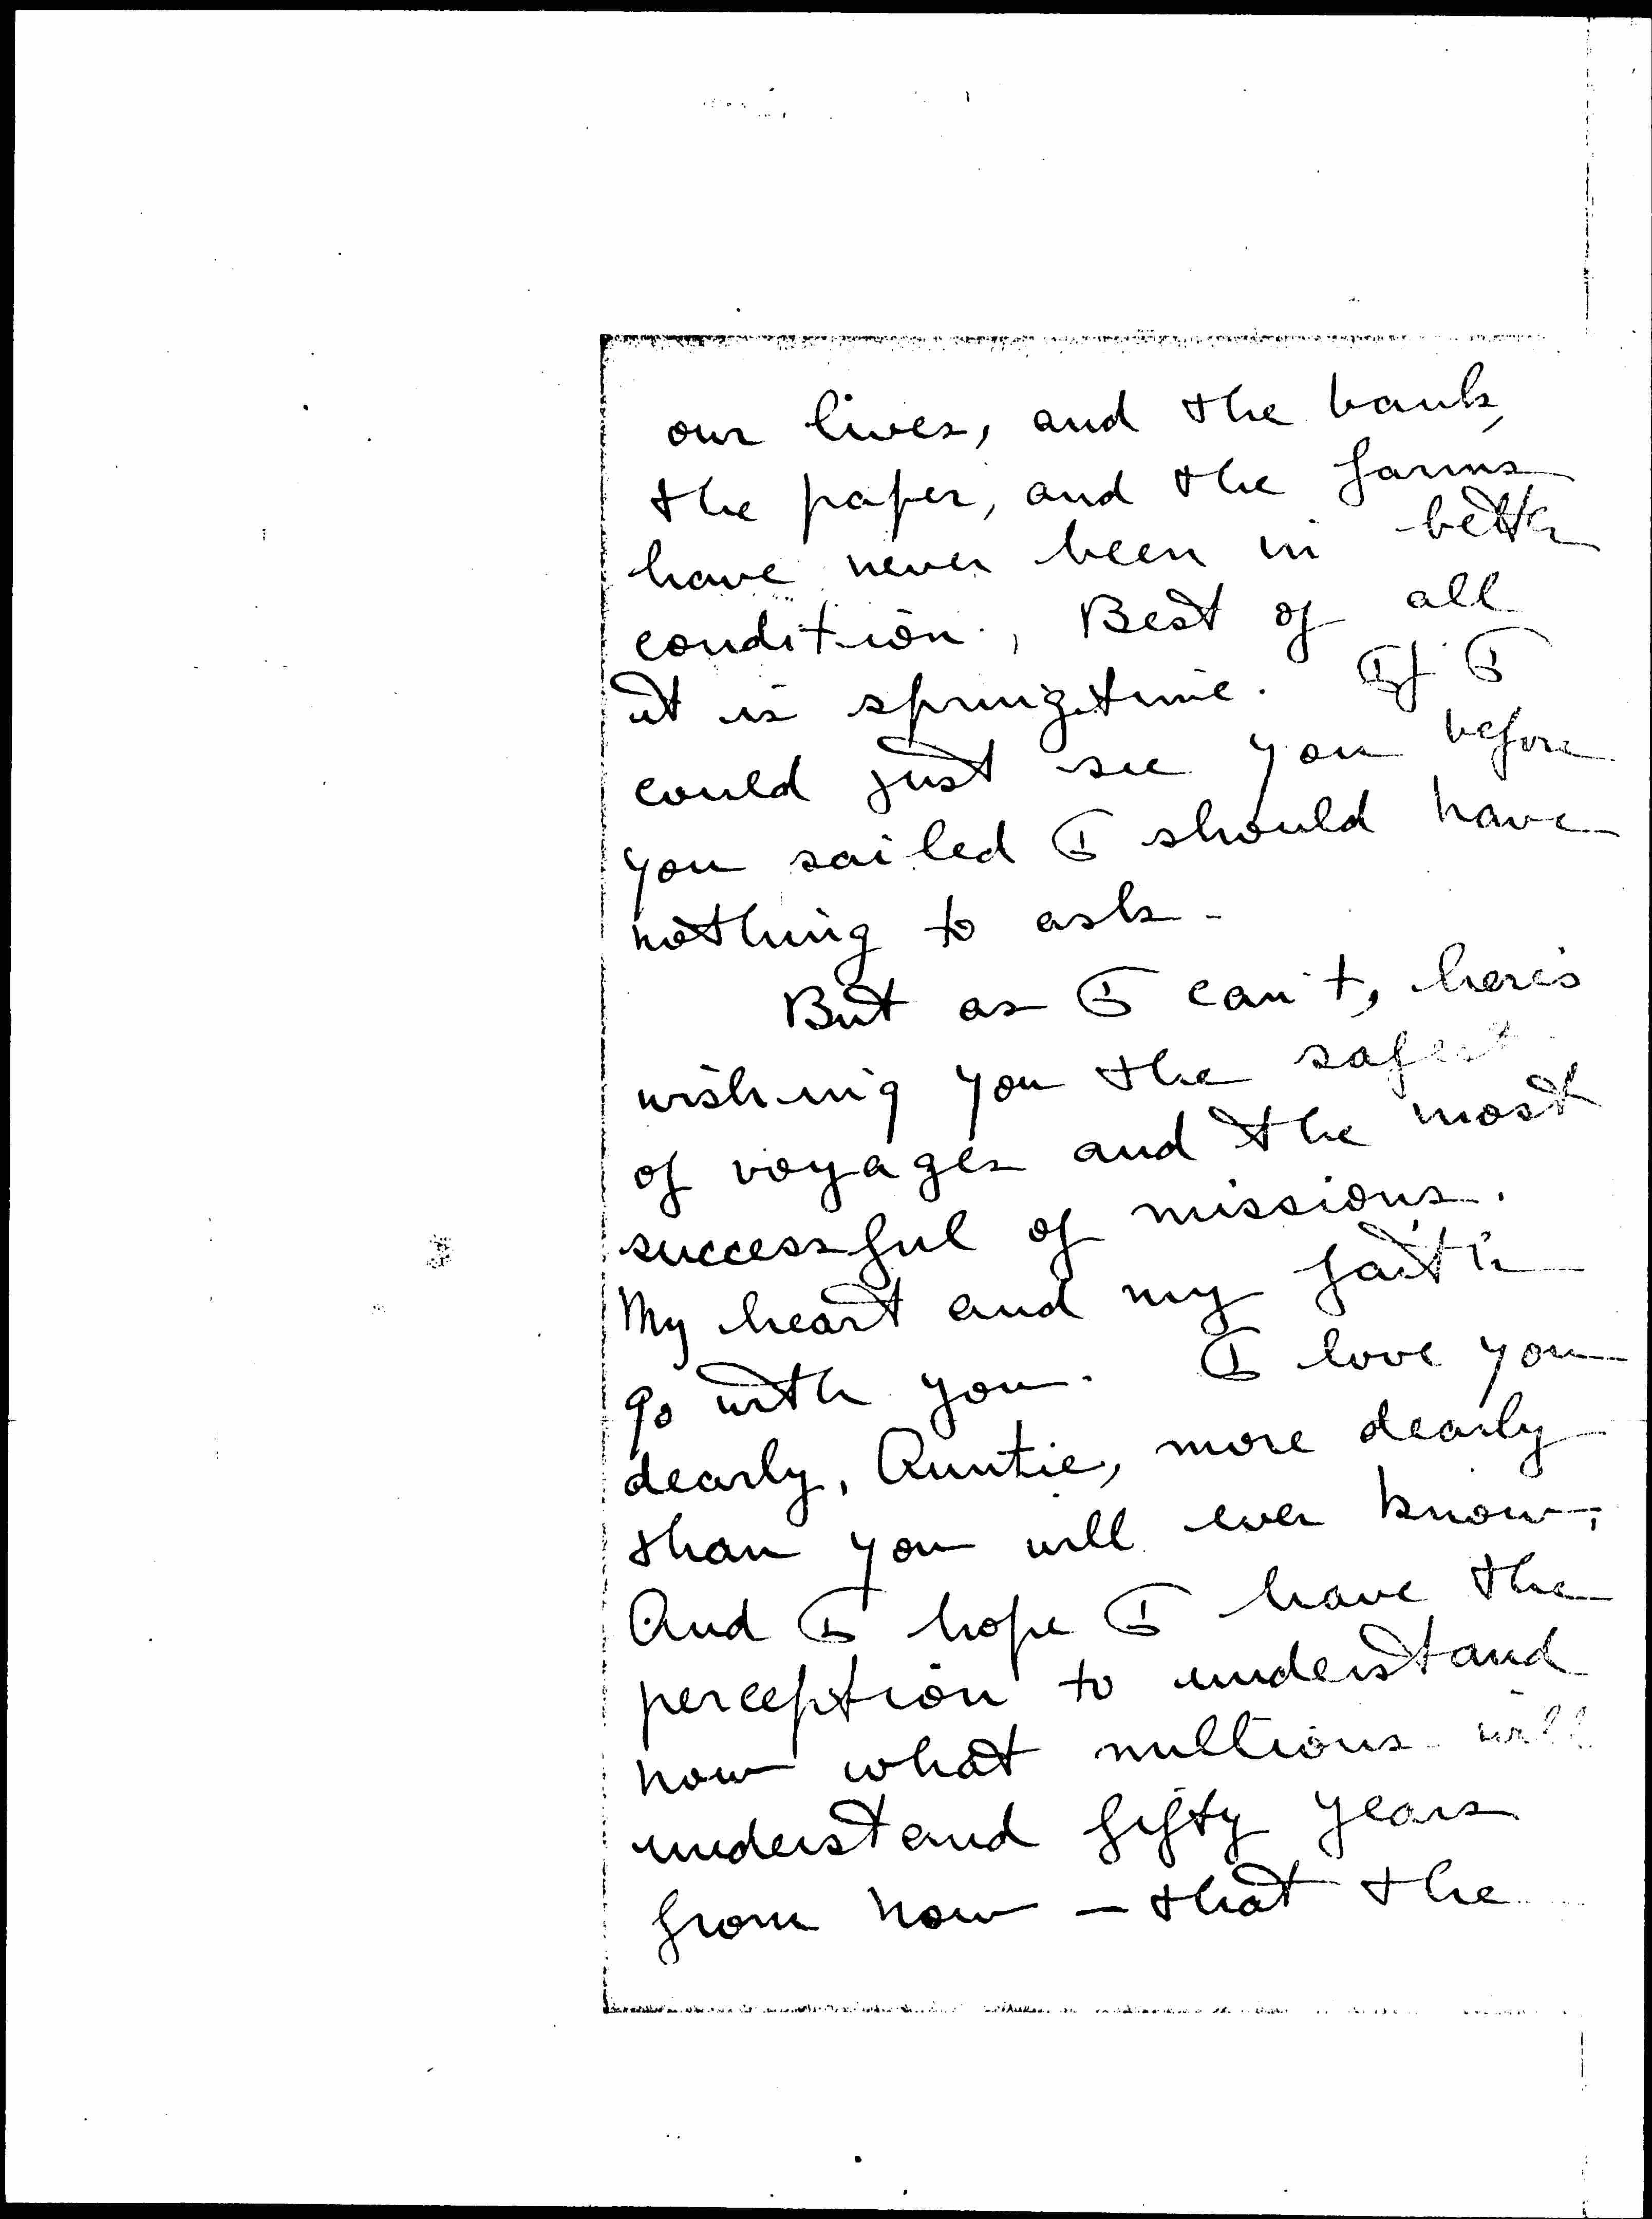 our lives, and the bank,
the paper, and the farms
have never been in better
condition., Best of all
it is springtime. If I
could just see you before
you sailed I should have
nothing to ask.
But as I can't, here's
wishing you the safest
of voyages and the most
successful of missions.
My heart and my faith
go with you. I love you
dearly, Auntie, more dearly
than you will ever know;
And I hope I have the
perception to understand
now what millions will
understand fifty years
from now – that the